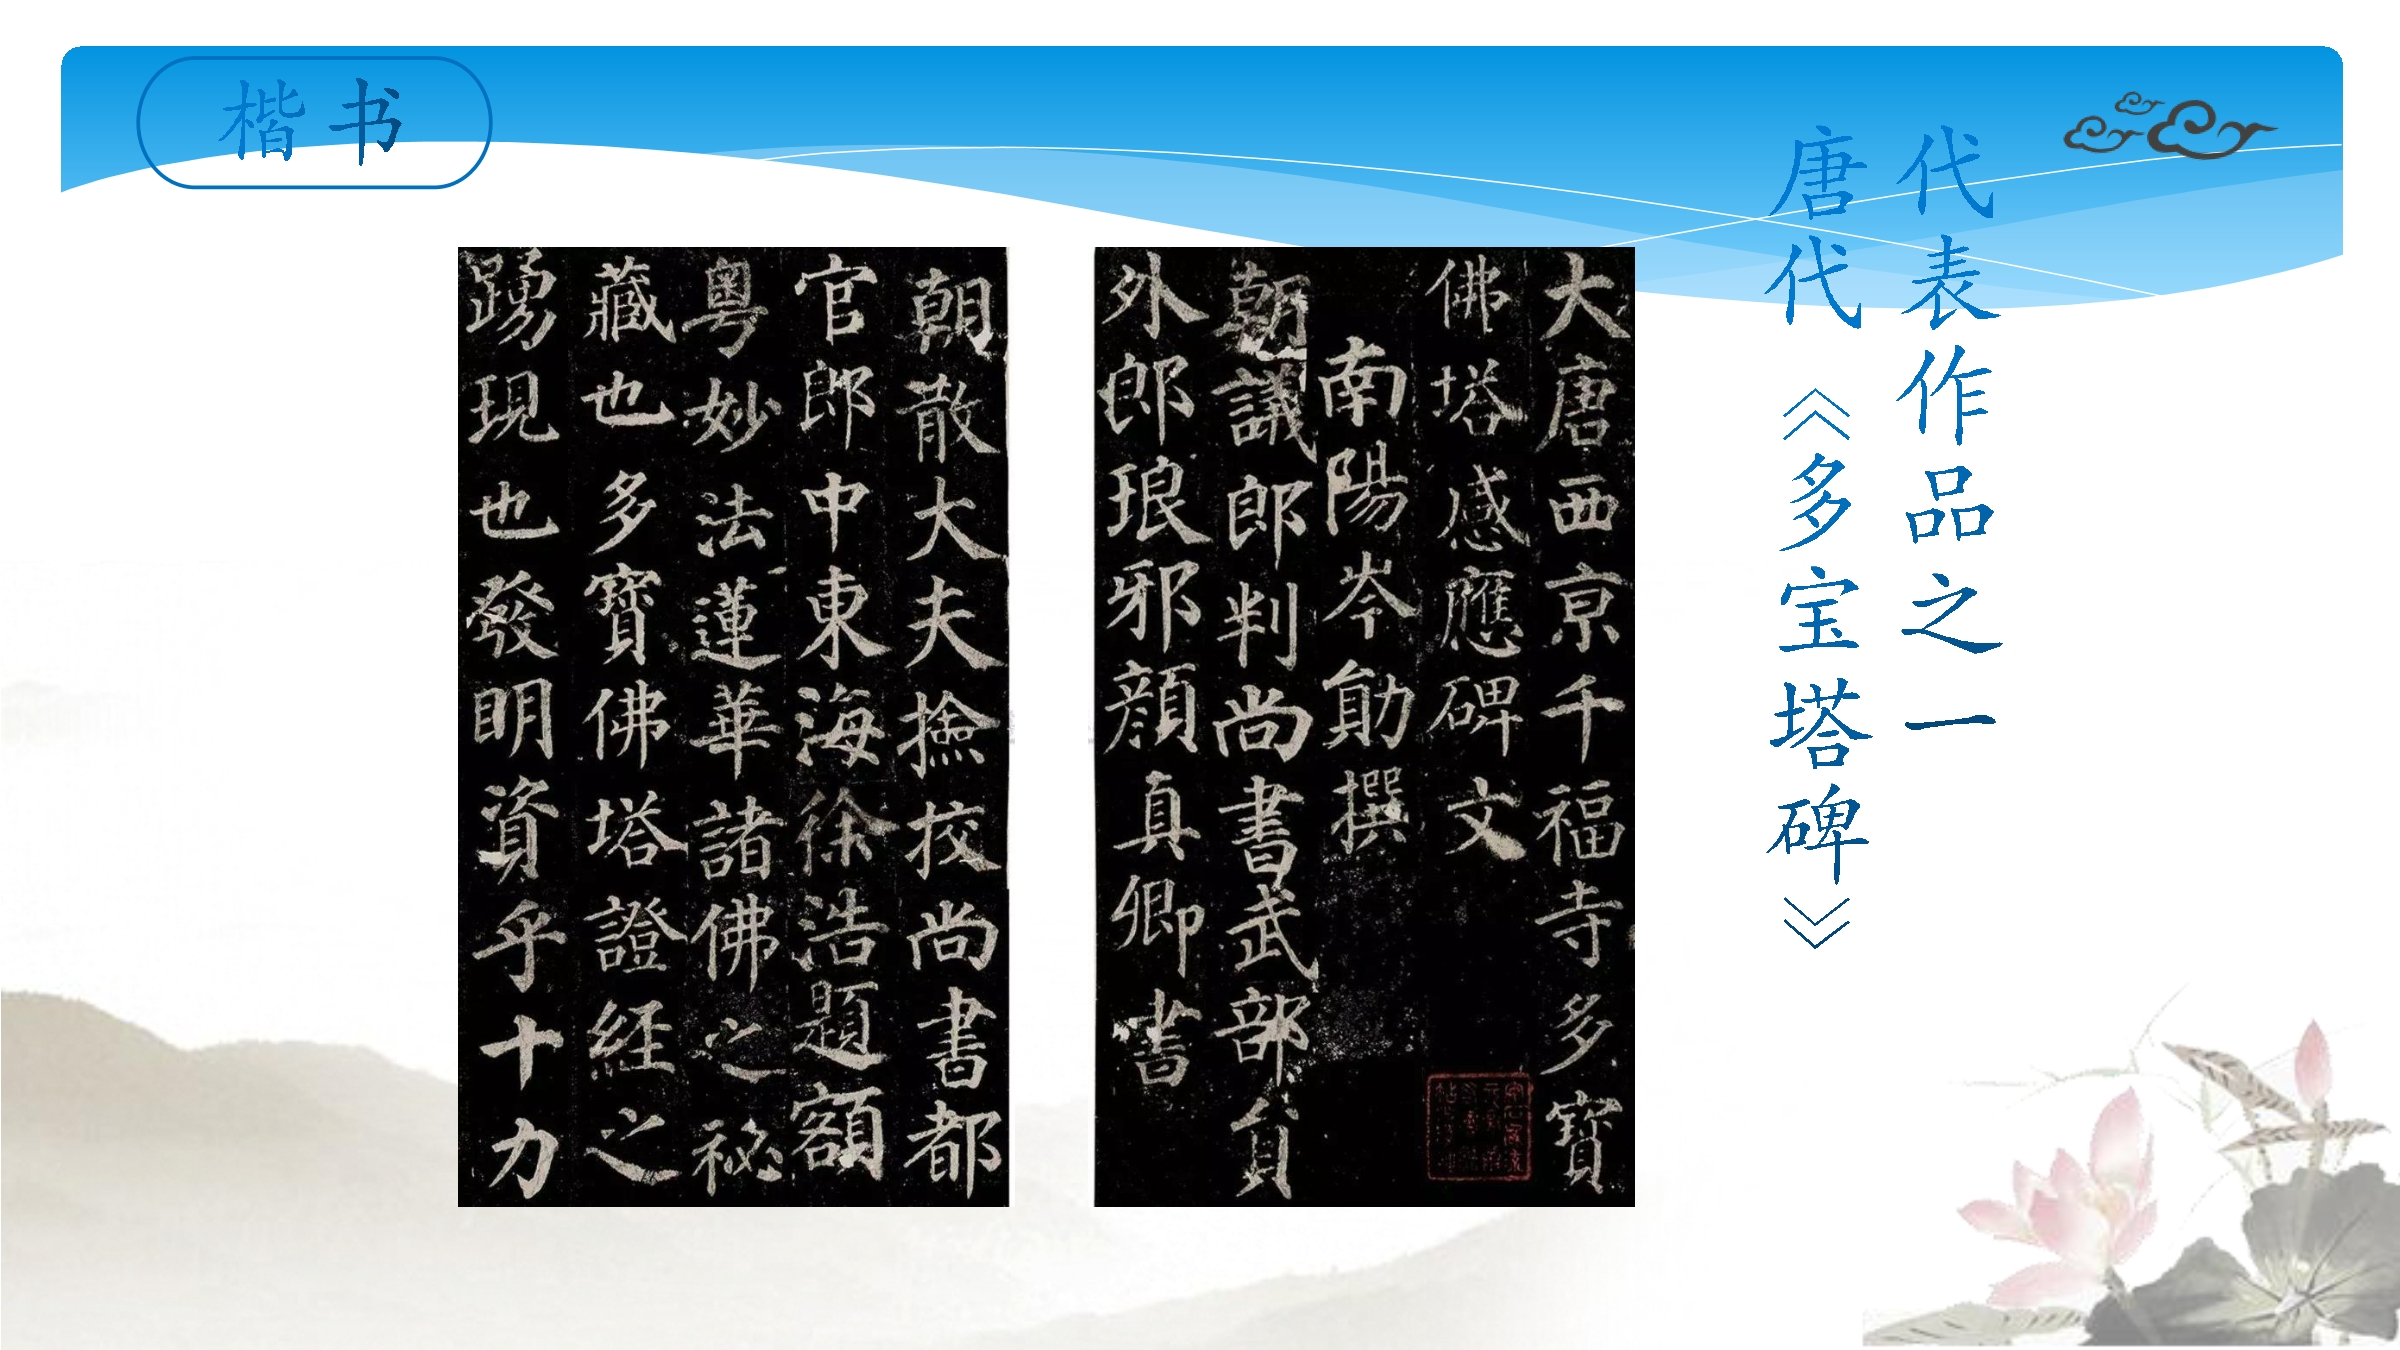 楷书
代表作品之一
唐代《多宝塔碑》
大唐西京千福寺多寶
佛塔感應碑文
南陽岑勛撰
朝議郎判尚書武部員
外郎琅邪顏真卿書
朝散大夫撿挍尚書都
官郎中東海徐浩題額
粵妙法蓮華諸佛之秘
藏也多寶佛塔證經之
踴現也發明資乎十力